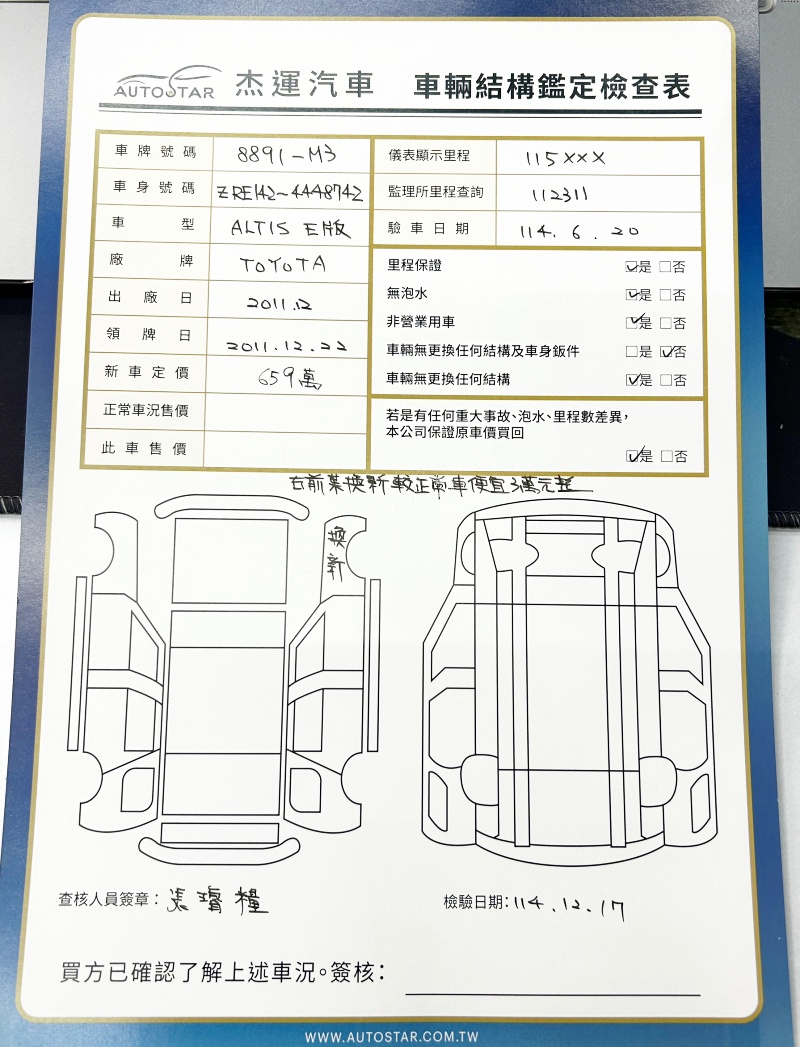 AUTOSTAR 杰運汽車 車輛結構鑑定檢查表
車牌號碼 8891-M3
車身號碼 ZRE142-4448742
車型 ALTIS E版
廠牌 TOYOTA
出廠日 2011.12
領牌日 2011.12.22
新車定價 659萬
正常車況售價
此車售價
儀表顯示里程 115XXX
監理所里程查詢 112311
驗車日期 114.6.20
里程保證 ☑是 ☐否
無泡水 ☑是 ☐否
非營業用車 ☑是 ☐否
車輛無更換任何結構及車身鈑件 ☐是 ☑否
車輛無更換任何結構 ☑是 ☐否
若是有任何重大事故、泡水、里程數差異，
本公司保證原車價買回
☑是 ☐否
右前葉換新 較正常車便宜3萬元起
換
新
查核人員簽章：張 糧
檢驗日期：114.12.17
買方已確認了解上述車況。簽核：
WWW.AUTOSTAR.COM.TW